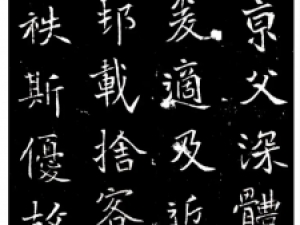 京父深體
爰適及近
邦載捨客
秩斯優故